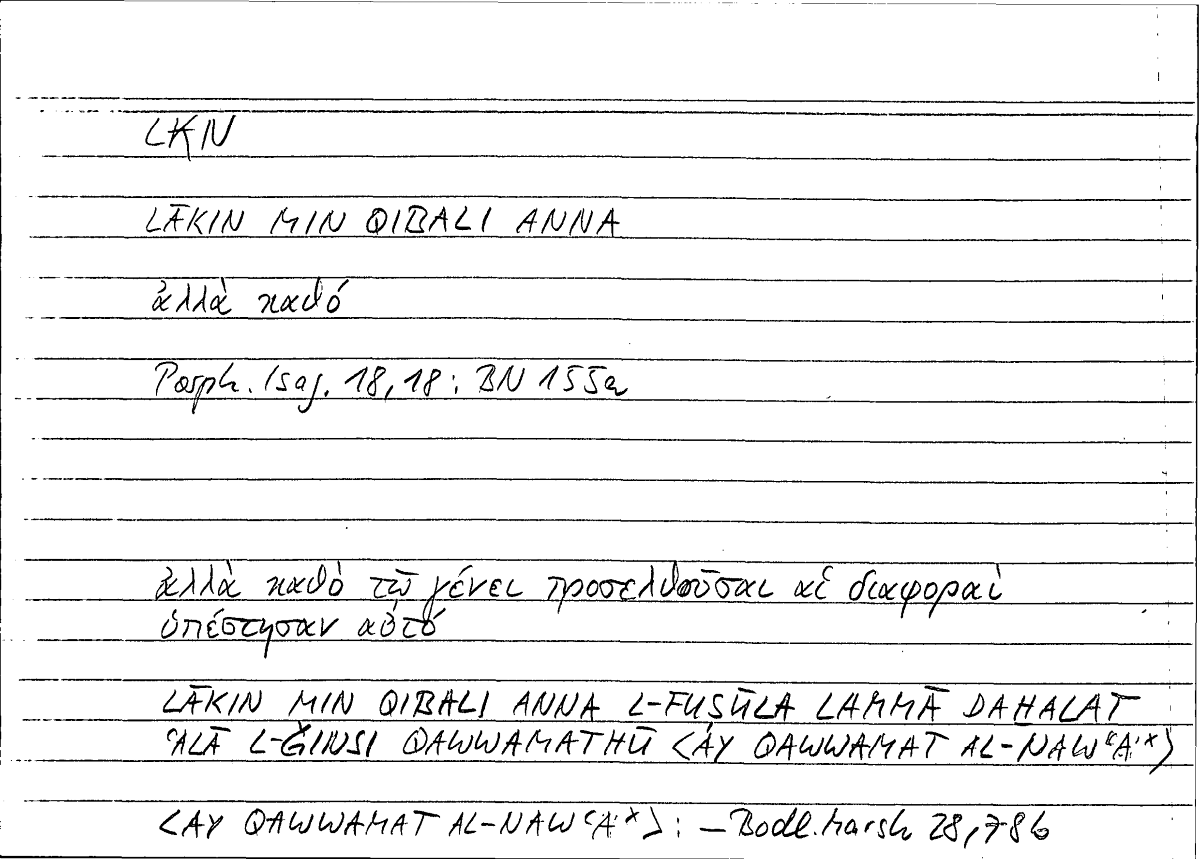 LKN
LĀKIN MIN QIBALI ANNA
ἀλλὰ καθό
Porph. Isag. 18,18: BN 155a
ἀλλὰ καθὸ τῷ γένει προσελθοῦσαι αἱ διαφοραὶ
ὑπέστησαν αὐτό
LĀKIN MIN QIBALI ANNA L-FUṢŪLA LAMMĀ DAḪALAT
ʿALĀ L-ǦINSI QAWWAMATHŪ <AY QAWWAMAT AL-NAWʿA:*>
<AY QAWWAMAT AL-NAWʿA:*>: – Bodl. Marsh 28,78b